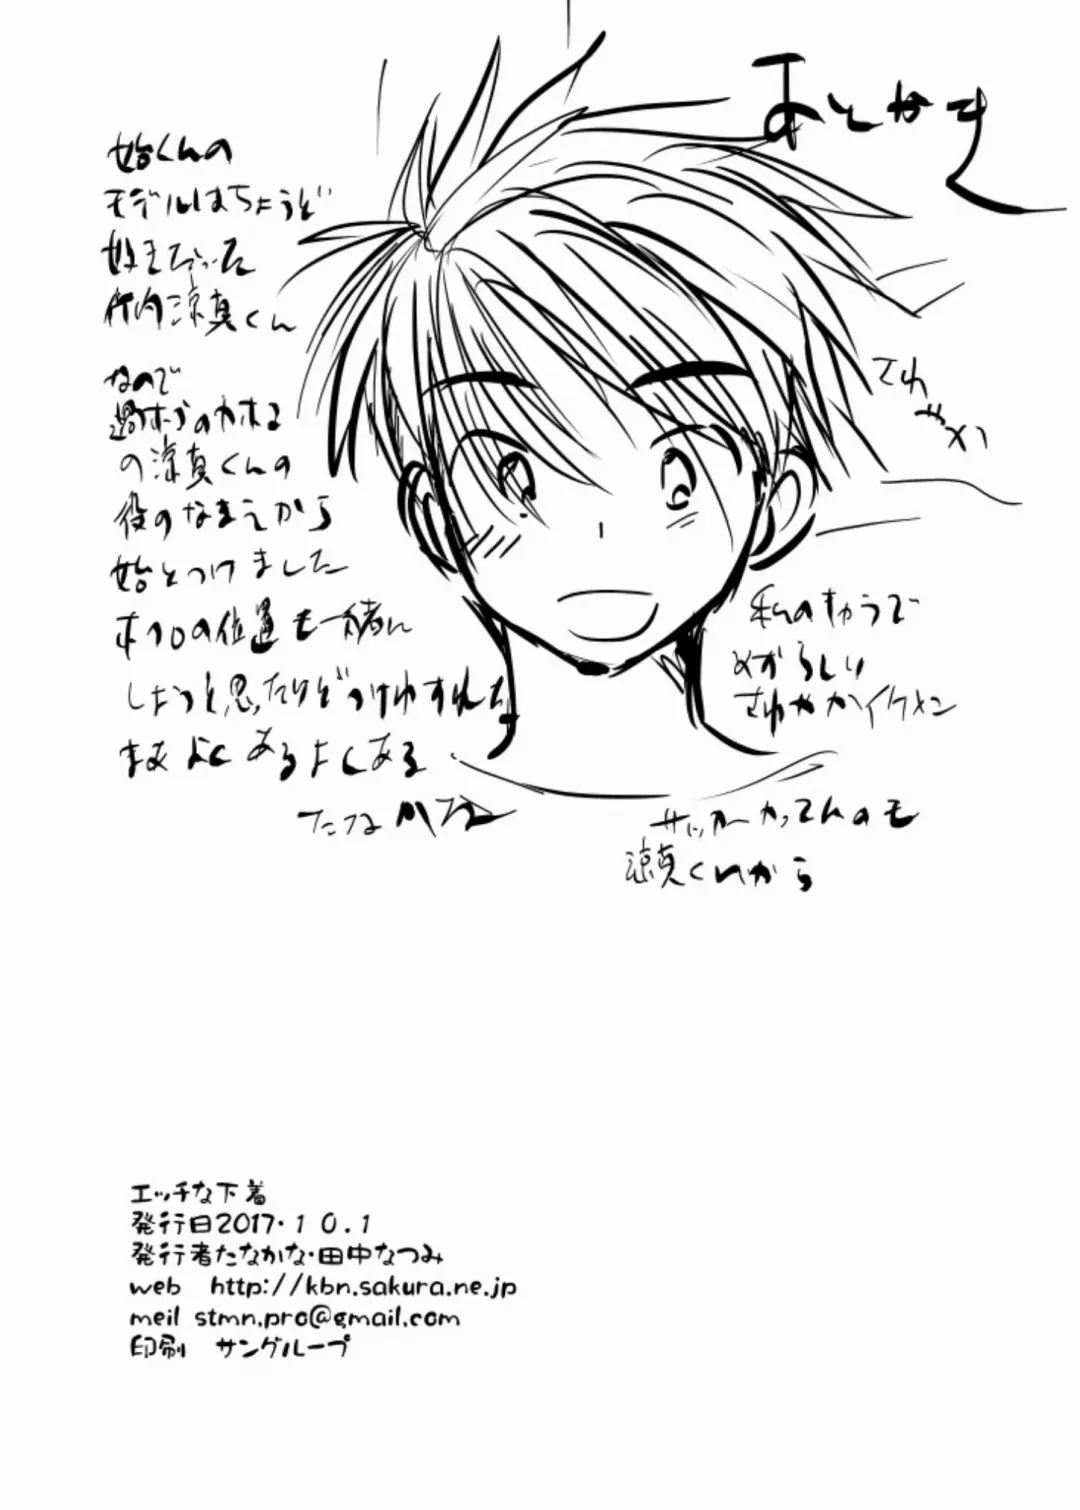 あとがき
始くんの
モデルはちょうど
好きだった
竹内涼真くん
なので
過保護のカホコ
の涼真くんの
役のなまえから
始とつけました
ホクロの位置も一緒に
しようと思ったけどつけわすれた
まあよくあるよくある
たなかな
さわ
やか
私のきゅうで
めずらしい
さわやかイケメン
サッカーやってんのも
涼真くんから
エッチな下着
発行日2017.10.1
発行者たなかな・田中なつみ
web http://kbn.sakura.ne.jp
meil stmn.pro@gmail.com
印刷 サングループ